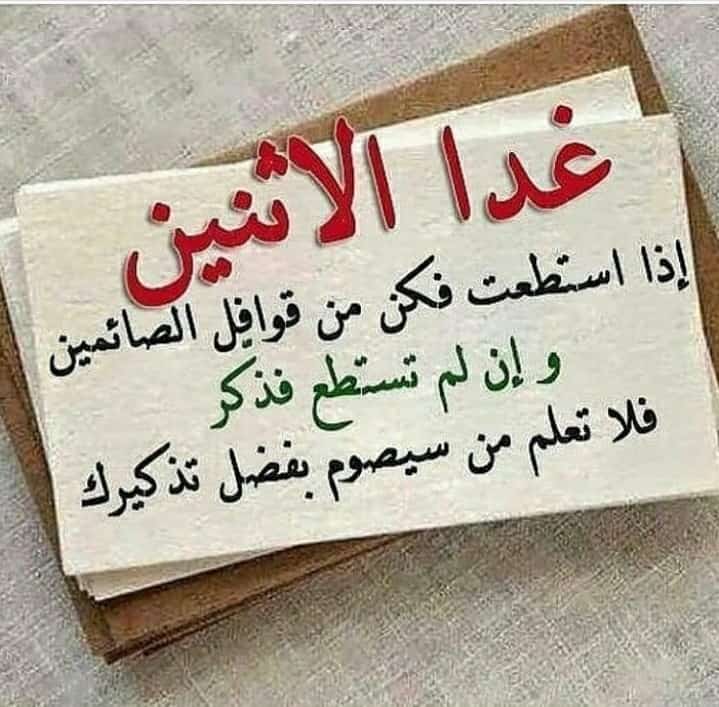 غدا الاثنين
إذا استطعت فكن من قوافل الصائمين
و إن لم تستطع فذكر
فلا تعلم من سيصوم بفضل تذكيرك